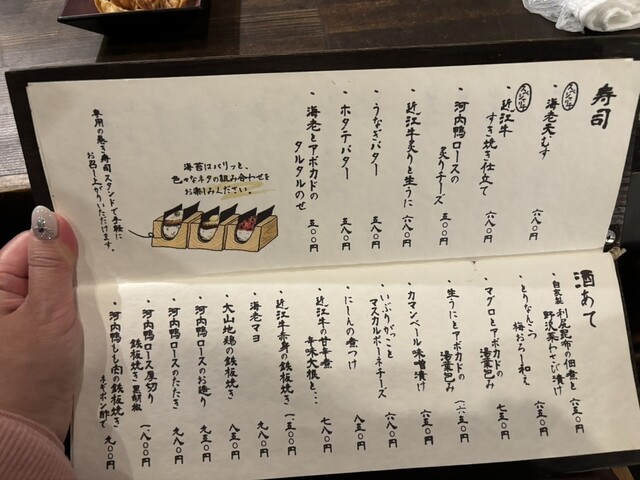 寿司
スペシャル
・海老天むす 六八〇円
スペシャル
・近江牛
すき焼き仕立て 六八〇円
・河内鴨ロースの
炙りチーズ 五〇〇円
・近江牛炙りと生うに 六八〇円
・うなぎバター 五八〇円
・ホタテバター 五八〇円
・海老とアボカドの
タルタルのせ 五〇〇円
海苔はパリッと、
色々なネタの組み合わせを
お楽しみください。
専用の巻き寿司スタンドで手軽に
お召し上がりいただけます。
酒あて
・自家製 利尻昆布の佃煮と
野沢菜わさび漬け 六五〇円
・とりなんこつ
梅おろし和え 六五〇円
・マグロとアボカドの
湯葉包み 七五〇円
・生うにとアボカドの
湯葉包み 一六五〇円
・カマンベール味噌漬け 六五〇円
・いぶりがっこと
マスカルポーネチーズ 六八〇円
・にしんの煮つけ 八五〇円
・近江牛の甘辛煮
辛味大根と… 七八〇円
・近江牛赤身の鉄板焼き 一五〇〇円
・海老マヨ 九八〇円
・大山地鶏の鉄板焼き 八五〇円
・河内鴨ロースのお造り 九五〇円
・河内鴨ロースのたたき 九八〇円
・河内鴨ロース厚切り
鉄板焼き 黒胡椒 一八〇〇円
・河内鴨もも肉の鉄板焼き
ネギポン酢で 九〇〇円